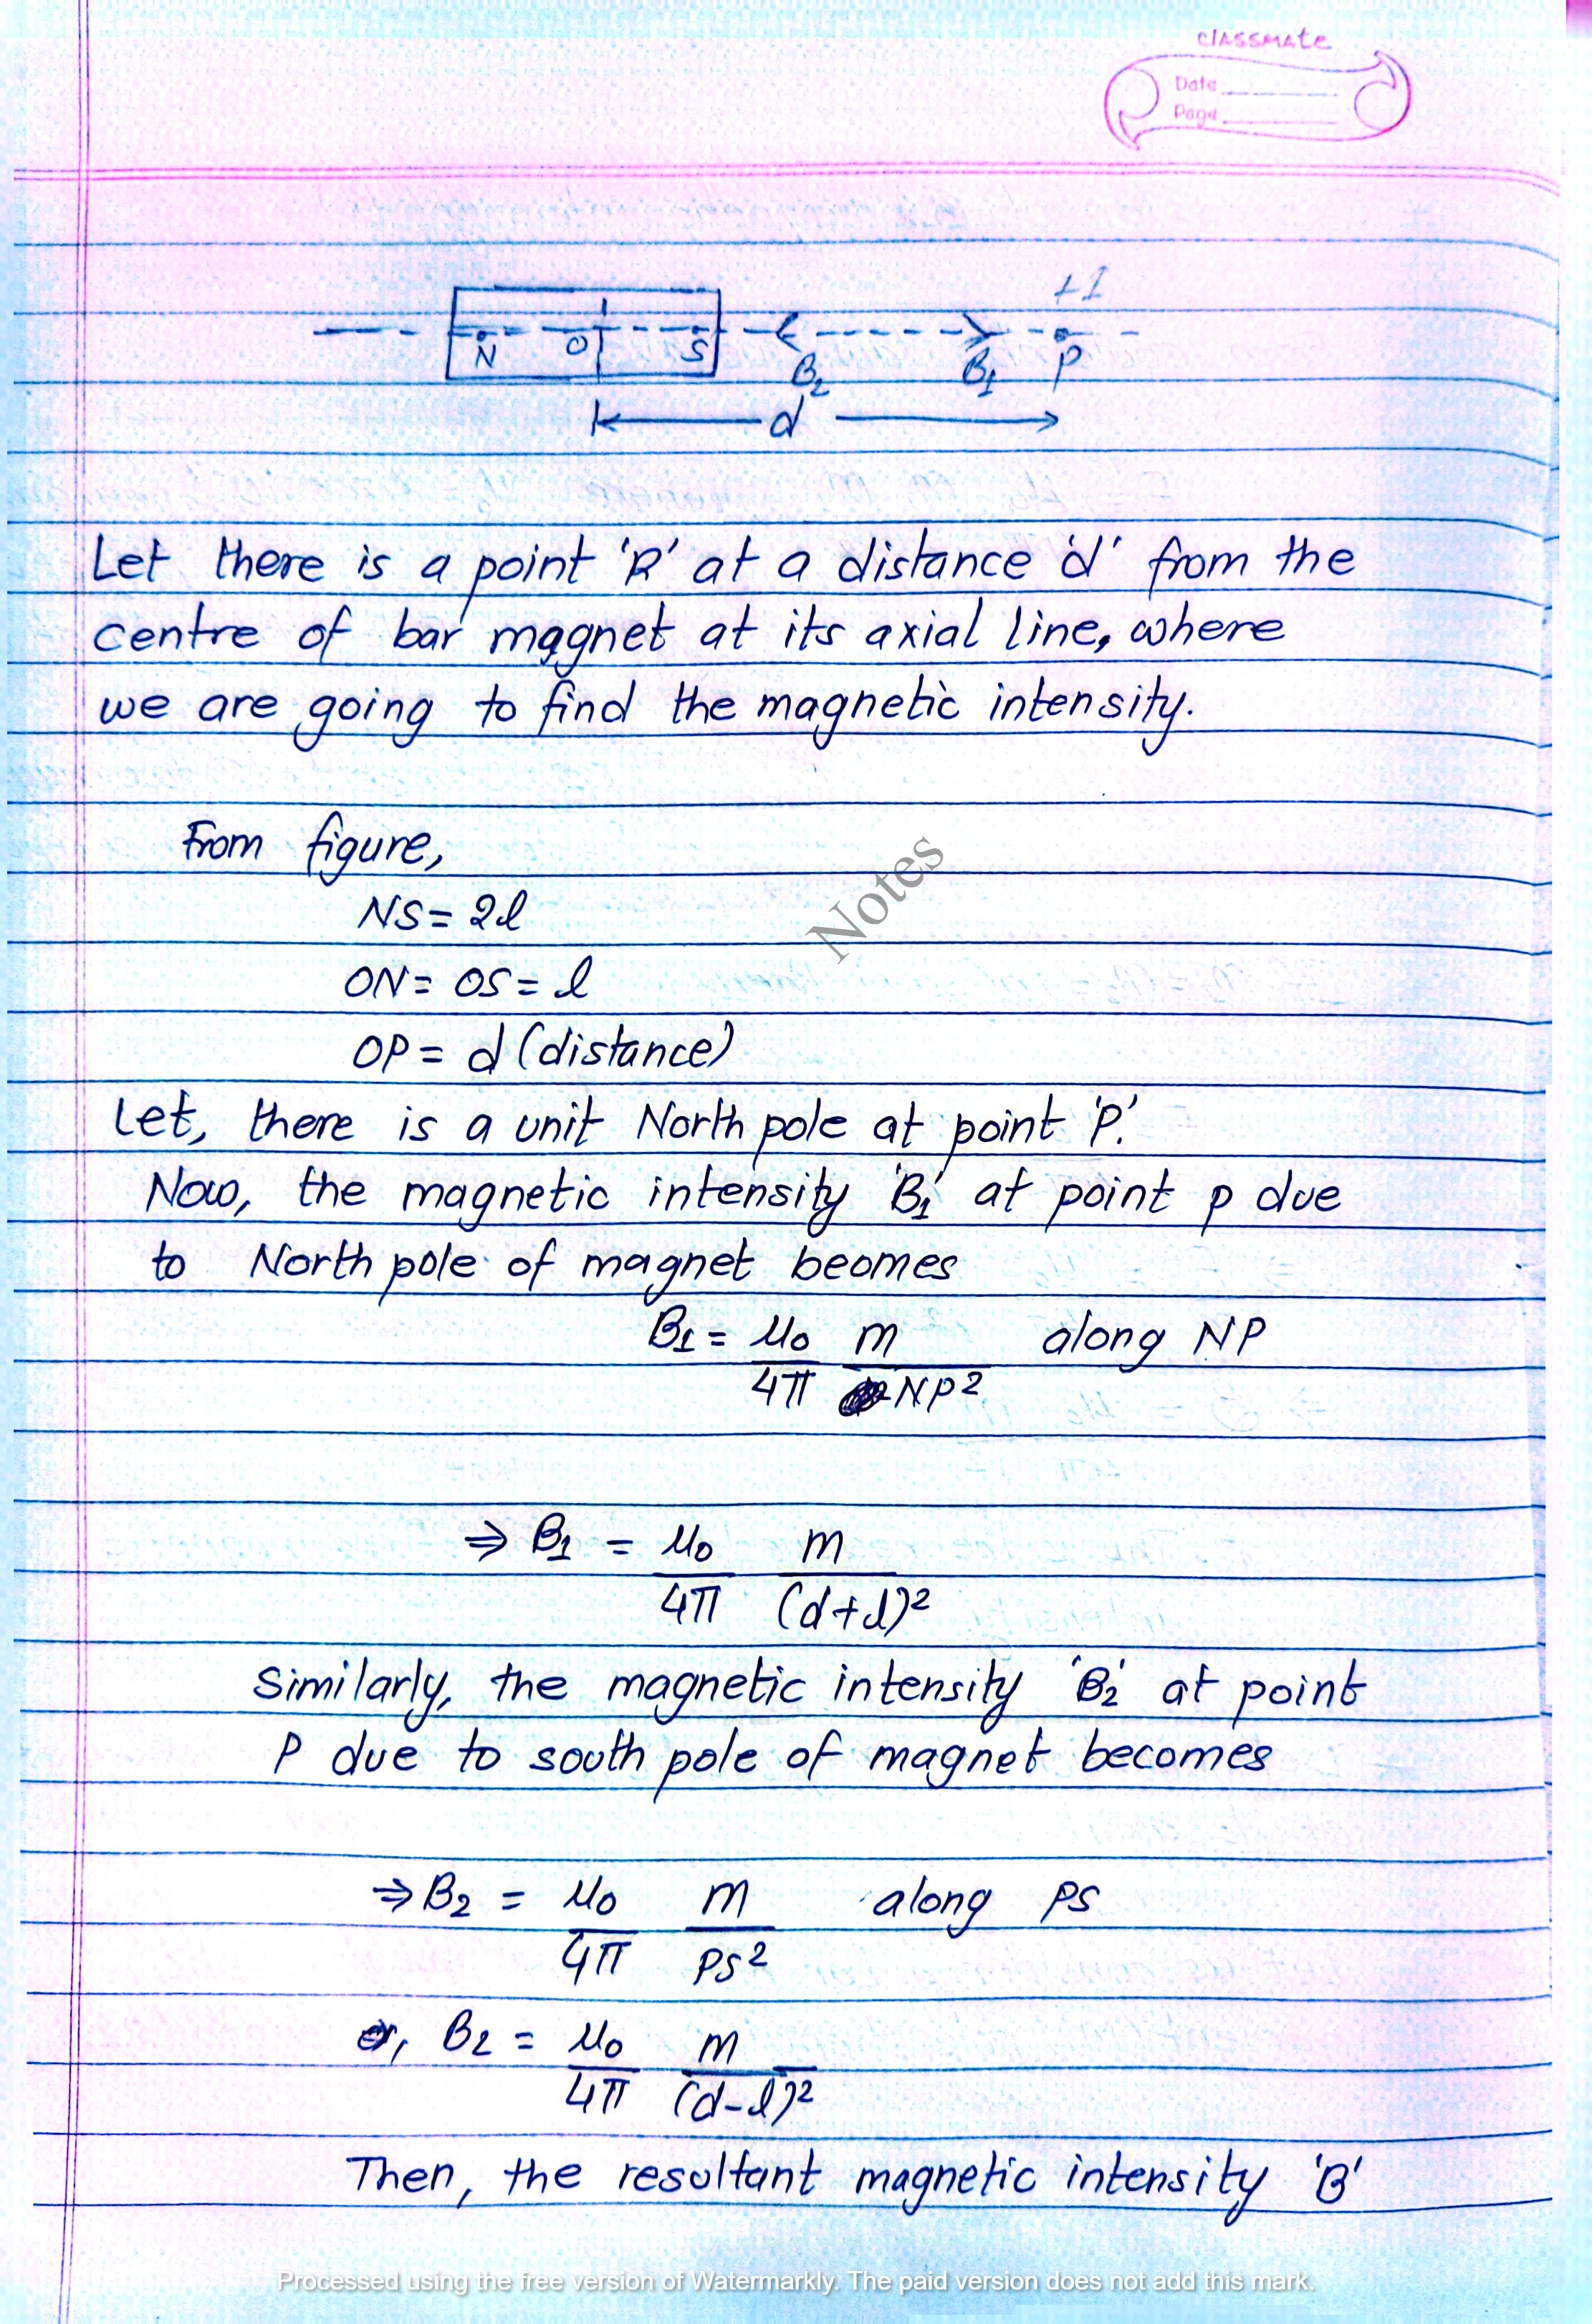 classmate
Date
Page
+1
N O S B₂ B₁ P
d
Let there is a point 'R' at a distance 'd' from the
centre of bar magnet at its axial line, where
we are going to find the magnetic intensity.
From figure,
NS = 2l
Notes
ON = OS = l
OP = d (distance)
Let, there is a unit North pole at point 'P'.
Now, the magnetic intensity 'B₁' at point p due
to North pole of magnet beomes
B₁ = μ₀/4π m/NP² along NP
⇒ B₁ = μ₀/4π m/(d+l)²
Similarly, the magnetic intensity 'B₂' at point
P due to south pole of magnet becomes
⇒ B₂ = μ₀/4π m/PS² along PS
or, B₂ = μ₀/4π m/(d-l)²
Then, the resultant magnetic intensity 'B'
Processed using the free version of Watermarkly. The paid version does not add this mark.